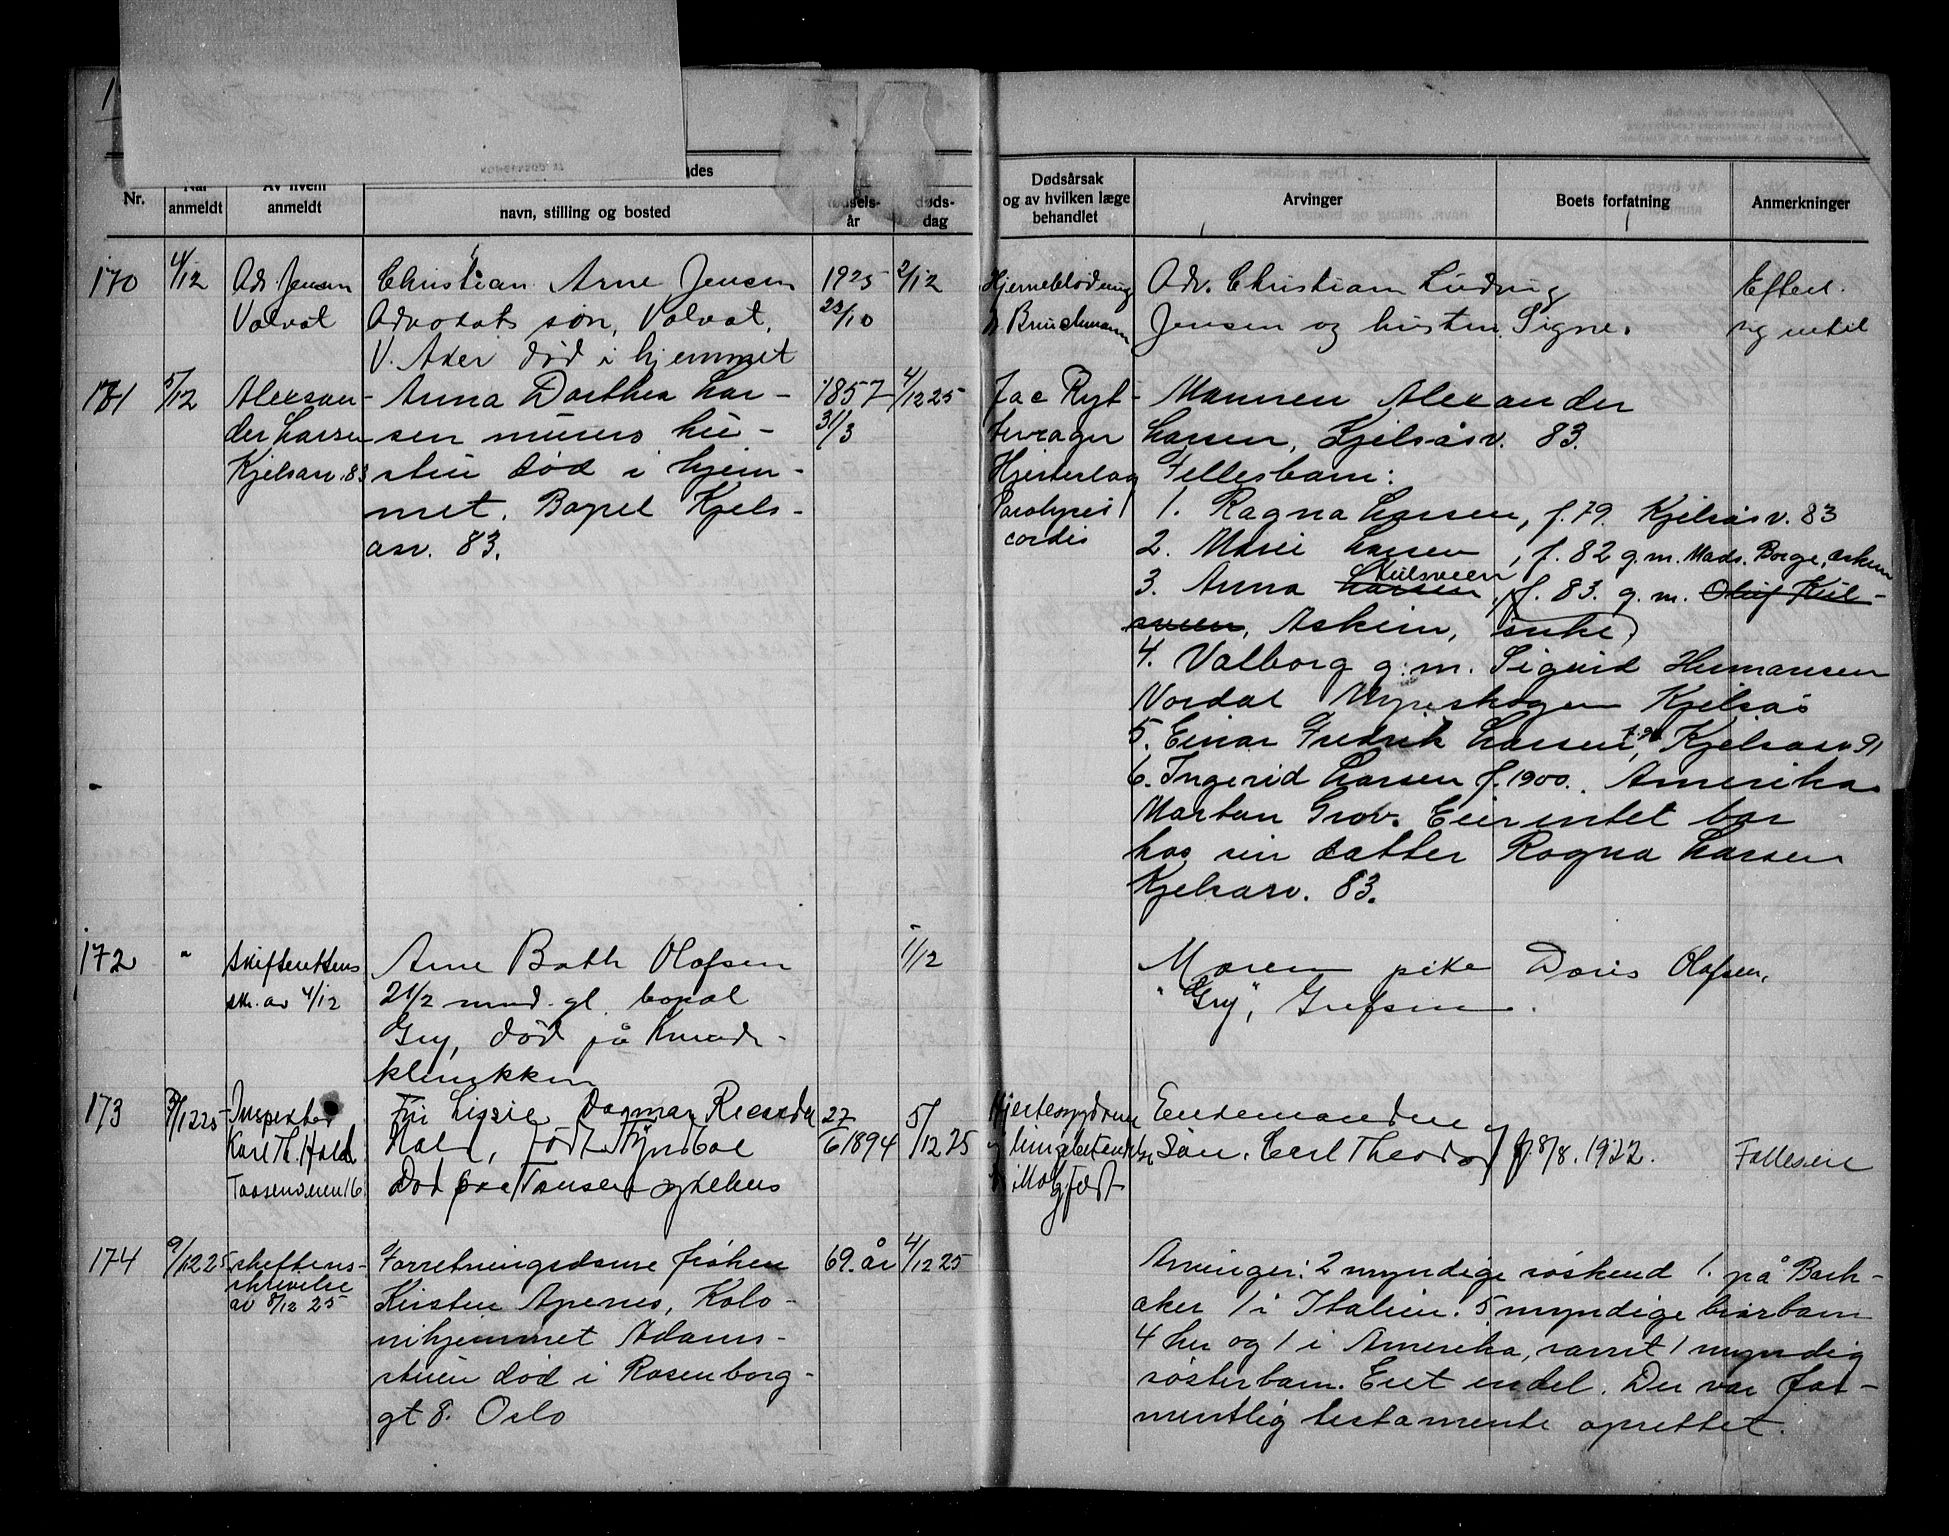 Nr.
anmeldt
Av hvem
anmeldt
navn, stilling og bosted
år
døds-
dag
Dødsårsak
og av hvilken læge
behandlet
Arvinger
Boets forfatning
Anmerkninger
170
4/12
Adv. Jensen
Volvat
Christian Arne Jensen
Advokats søn, Volvat,
V. Aker død i hjemmet
1925
22/10
2/12
Hjerneblødning
Adv. Christian Ludvig
Jensen og hustru Signe.
171
5/12
Alexsan-
der Larsen
Kjelsasv. 83
Anna Dorthea Lar-
sen murers hu-
stru død i hjem-
met. Bopel Kjels-
asv. 83.
1857
31/3
4/12 25
Hjerteslag
Paralysis
cordis
Mannen Alexander
Larsen, Kjelsåsv. 83.
Fellesbarn:
1. Ragna Larsen, f. 79. Kjelsåsv. 83
2. Marie Larsen, f. 82 g.m. Mads. Borge, Askim
3. Anna Larsen Kulsveen, f. 83. g.m. Oluf Kul-
sveen, Askim, enke
4. Valborg g.m. Sigurd Hermansen
Nordal Myrerskogen Kjelsås
5. Einar Fredrik Larsen, Kjelsasv 91
6. Ingerid Larsen f. 1900. Amerika
Enemntet bor
hos sin datter Ragna Larsen
Kjelsasv. 83.
172
"
Skifterettens
skr. av 4/12
Arne Bath Olafsen
2 1/2 mnd. gl. bopal
Gry, død på Kvinde-
klinikken
1/12
Moren pike Doris Olafsen,
"Gry", Grefsen.
173
Inspektør
Karl Th. Hald
Taasenveien 16
Fru Lissie Dagmar
27/6 1894
5/12 25
Enkemanden og
Søn. Carl Theodor f. 8/8. 1922.
Felleseie
174
9/12 25
skiftens-
skrivelse
av 8/12 25
Forretningsdame frøken
Kirsten Apenes, Kolo-
nihjemmet Adams-
stuen død i Rosenborg-
gt 8. Oslo
69. år
4/12 25
Arvinger: 2 myndige søskend 1. på Bark-
aker 1 i Italien. 5 myndige brorbarn
4 her og 1 i Amerika, samt 1 myndig
søsterbarn. Eiet endel. Der var for-
mentlig testamente oprettet.